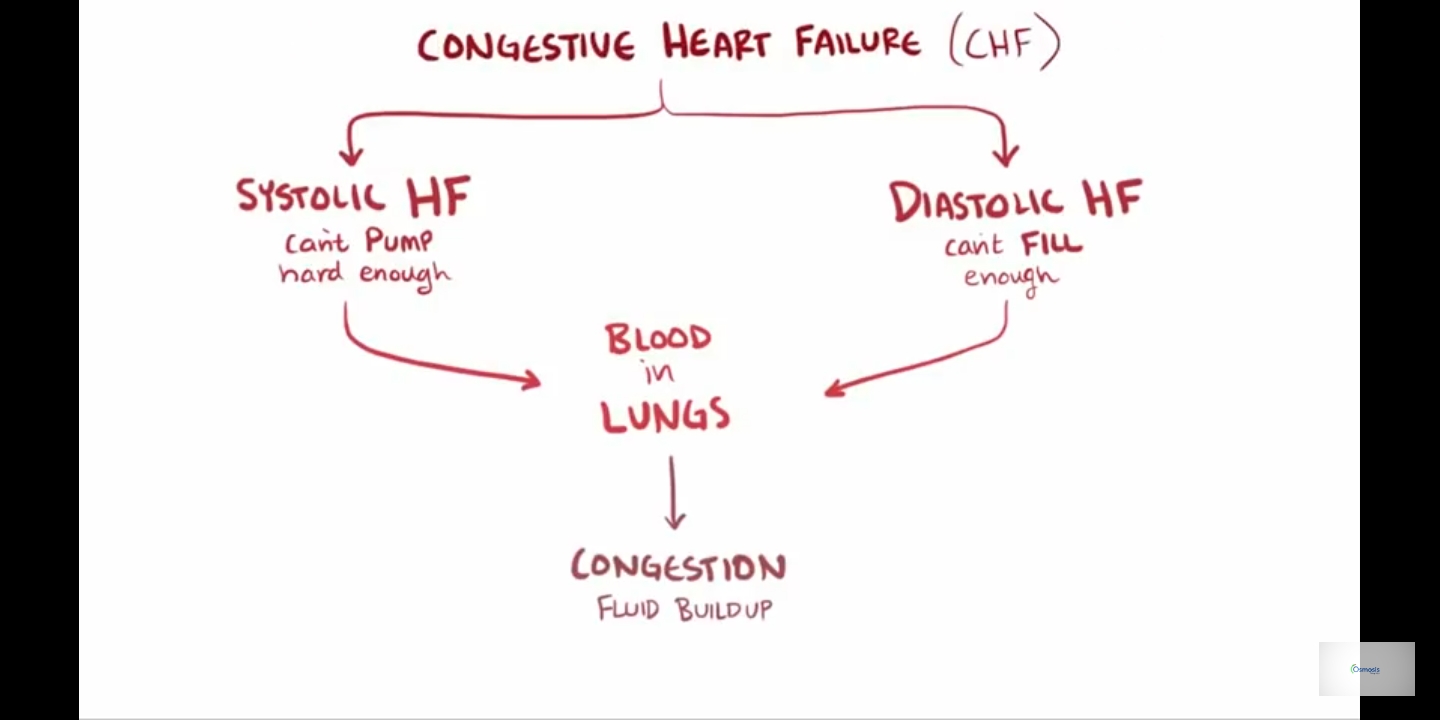 CONGESTIVE HEART FAILURE (CHF)
SYSTOLIC HF
can't PUMP
hard enough
DIASTOLIC HF
can't FILL
enough
BLOOD
in
LUNGS
CONGESTION
FLUID BUILDUP
Osmosis